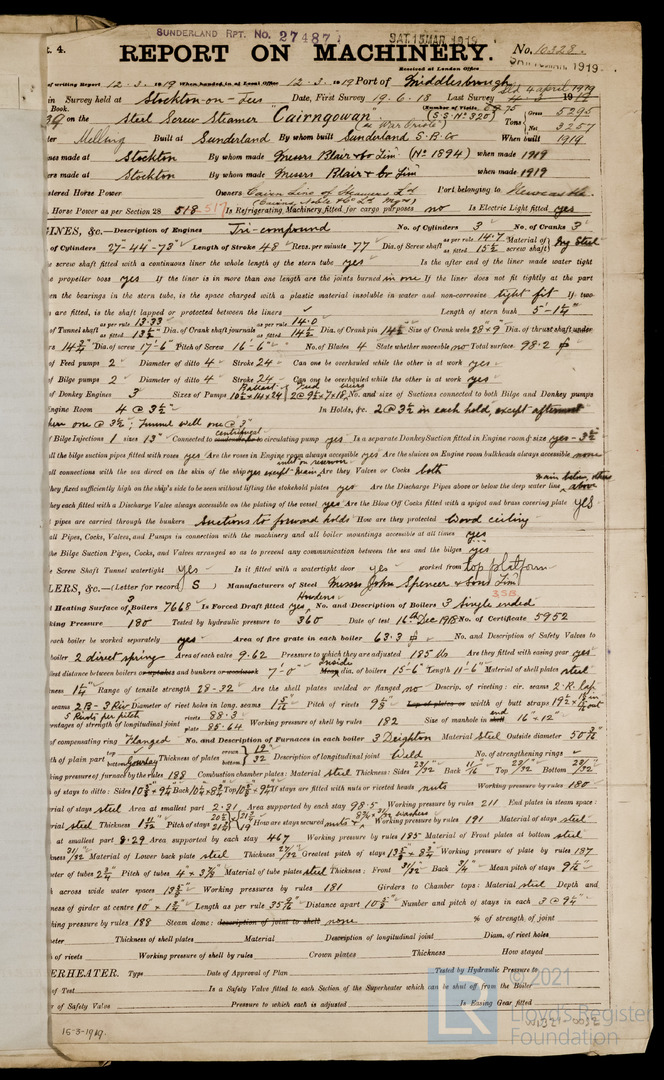 SUNDERLAND RPT. No. 27487
SAT. 15 MAR. 1919
t. 4. REPORT ON MACHINERY. No. 10328.
Received at London Office SAT. 15 MAR. 1919
of writing Report 12.3.1919 When handed in at Local Office 12.3.1919 Port of Middlesbrough
in Survey held at Stockton-on-Tees Date, First Survey 19.6.18 Last Survey 4 April 1919
Book. (Number of Visits 75)
39 on the Steel Screw Steamer "Cairngowan" (S.S. No 320) Tons Gross 5295 Net 3257
ter Melling Built at Sunderland By whom built Sunderland S.B. Co When built 1919
ines made at Stockton By whom made Messrs Blair & Co Lim (No 1894) when made 1919
ers made at Stockton By whom made Messrs Blair & Co Lim when made 1919
stered Horse Power Owners Cairn Line of Steamers Ld Port belonging to Newcastle
(Cairns, Noble & Co Ld Mgrs)
. Horse Power as per Section 28 518 517 Is Refrigerating Machinery fitted for cargo purposes no Is Electric Light fitted yes
GINES, &c.—Description of Engines Tri-compound No. of Cylinders 3 No. of Cranks 3
of Cylinders 27-44-73" Length of Stroke 48" Revs. per minute 77 Dia. of Screw shaft as per rule 14.7 as fitted 15½ Material of screw shaft Ing Steel
e screw shaft fitted with a continuous liner the whole length of the stern tube yes Is the after end of the liner made water tight
e propeller boss yes If the liner is in more than one length are the joints burned in one If the liner does not fit tightly at the part
n the bearings in the stern tube, is the space charged with a plastic material insoluble in water and non-corrosive tight fit If two
are fitted, is the shaft lapped or protected between the liners ✓ Length of stern bush 5'-1¼"
of Tunnel shaft as per rule 13.33 as fitted 13½ Dia. of Crank shaft journals as per rule 14.0 as fitted 14½ Dia. of Crank pin 14½ Size of Crank webs 28×9 Dia. of thrust shaft under
rs 14¾" Dia. of screw 17'-6" Pitch of Screw 16'-6" No. of Blades 4 State whether moveable no Total surface 98.2
of Feed pumps 2 Diameter of ditto 4 Stroke 24 Can one be overhauled while the other is at work yes
of Bilge pumps 2 Diameter of ditto 4 Stroke 24 Can one be overhauled while the other is at work yes
of Donkey Engines 3 Sizes of Pumps Ballast 10½×14×24 Feed 2@9½×7×18 No. and size of Suctions connected to both Bilge and Donkey pumps
ngine Room 4 @ 3½" In Holds, &c. 2@3½ in each hold, except aftermost
one @ 3½"; Tunnel well one @ 3"
f Bilge Injections 1 sizes 13" Connected to centrifugal circulating pump yes Is a separate Donkey Suction fitted in Engine room & size yes - 3½
ll the bilge suction pipes fitted with roses yes Are the roses in Engine room always accessible yes Are the sluices on Engine room bulkheads always accessible none
ll connections with the sea direct on the skin of the ship yes except main inlet on reservoir Are they Valves or Cocks both
hey fixed sufficiently high on the ship's side to be seen without lifting the stokehold plates yes Are the Discharge Pipes above or below the deep water line main below, others above
hey each fitted with a Discharge Valve always accessible on the plating of the vessel yes Are the Blow Off Cocks fitted with a spigot and brass covering plate yes
pipes are carried through the bunkers Suctions to forward holds How are they protected Wood ceiling
all Pipes, Cocks, Valves, and Pumps in connection with the machinery and all boiler mountings accessible at all times yes
he Bilge Suction Pipes, Cocks, and Valves arranged so as to prevent any communication between the sea and the bilges yes
e Screw Shaft Tunnel watertight yes Is it fitted with a watertight door yes worked from top platform
LERS, &c.—(Letter for record S) Manufacturers of Steel Messrs John Spencer & Sons Lim
3SB.
Heating Surface of 3 Boilers 7668 Is Forced Draft fitted yes Howdens No. and Description of Boilers 3 Single ended
king Pressure 180 Tested by hydraulic pressure to 360 Date of test 16th Dec 1918 No. of Certificate 5952
each boiler be worked separately yes Area of fire grate in each boiler 63.3 No. and Description of Safety Valves to
boiler 2 direct spring Area of each valve 9.62 Pressure to which they are adjusted 185 lbs Are they fitted with easing gear yes
llest distance between boilers or uptakes and bunkers or woodwork 7'-0" Inside dia. of boilers 15'-6" Length 11'-6" Material of shell plates steel
ness 1¼" Range of tensile strength 28-32 Are the shell plates welded or flanged no Descrip. of riveting: cir. seams 2.R. lap.
seams 2B-3Riv Diameter of rivet holes in long. seams 1 5/16 Pitch of rivets 9½ Lap of plates or width of butt straps 19½ × 1⅛ in
5 Rivets per pitch
entages of strength of longitudinal joint rivets 88.3 plate 85.64 Working pressure of shell by rules 182 Size of manhole in end 16"×12"
of compensating ring Flanged No. and Description of Furnaces in each boiler 3 Deighton Material steel Outside diameter 50 3/16"
th of plain part Thickness of plates crown bottom 19/32 Description of longitudinal joint Weld No. of strengthening rings
king pressure of furnace by the rules 188 Combustion chamber plates: Material steel Thickness: Sides 23/32 Back 11/16" Top 23/32 Bottom 23/32
h of stays to ditto: Sides 10⅝×9¼ Back Top If stays are fitted with nuts or riveted heads nuts Working pressure by rules 180
rial of stays steel Area at smallest part 2.31 Area supported by each stay 98.5 Working pressure by rules 211 End plates in steam space:
rial steel Thickness 1 11/32 Pitch of stays How are stays secured nuts & washers Working pressure by rules 191 Material of stays steel
at smallest part 8.29 Area supported by each stay 467 Working pressure by rules 185 Material of Front plates at bottom steel
kness 31/32 Material of Lower back plate steel Thickness 27/32 Greatest pitch of stays 13⅝ × 8¾ Working pressure of plate by rules 187
eter of tubes 2¾" Pitch of tubes 4"×3⅞ Material of tube plates steel Thickness: Front 31/32" Back ¾" Mean pitch of stays 9½"
h across wide water spaces 13⅝ Working pressures by rules 181 Girders to Chamber tops: Material steel Depth and
ness of girder at centre 10"×1¾" Length as per rule 35 9/16 Distance apart 10⅝ Number and pitch of stays in each 3 @ 9¼"
king pressure by rules 188 Steam dome: description of joint to shell none % of strength of joint
eter Thickness of shell plates Material Description of longitudinal joint Diam. of rivet holes
h of rivets Working pressure of shell by rules Crown plates Thickness How stayed
ERHEATER. Type Date of Approval of Plan Tested by Hydraulic Pressure to
of Test Is a Safety Valve fitted to each Section of the Superheater which can be shut off from the Boiler
r of Safety Valve Pressure to which each is adjusted Is Easing Gear fitted
15-3-1919.
© 2021
Lloyd's Register
Foundation
LR